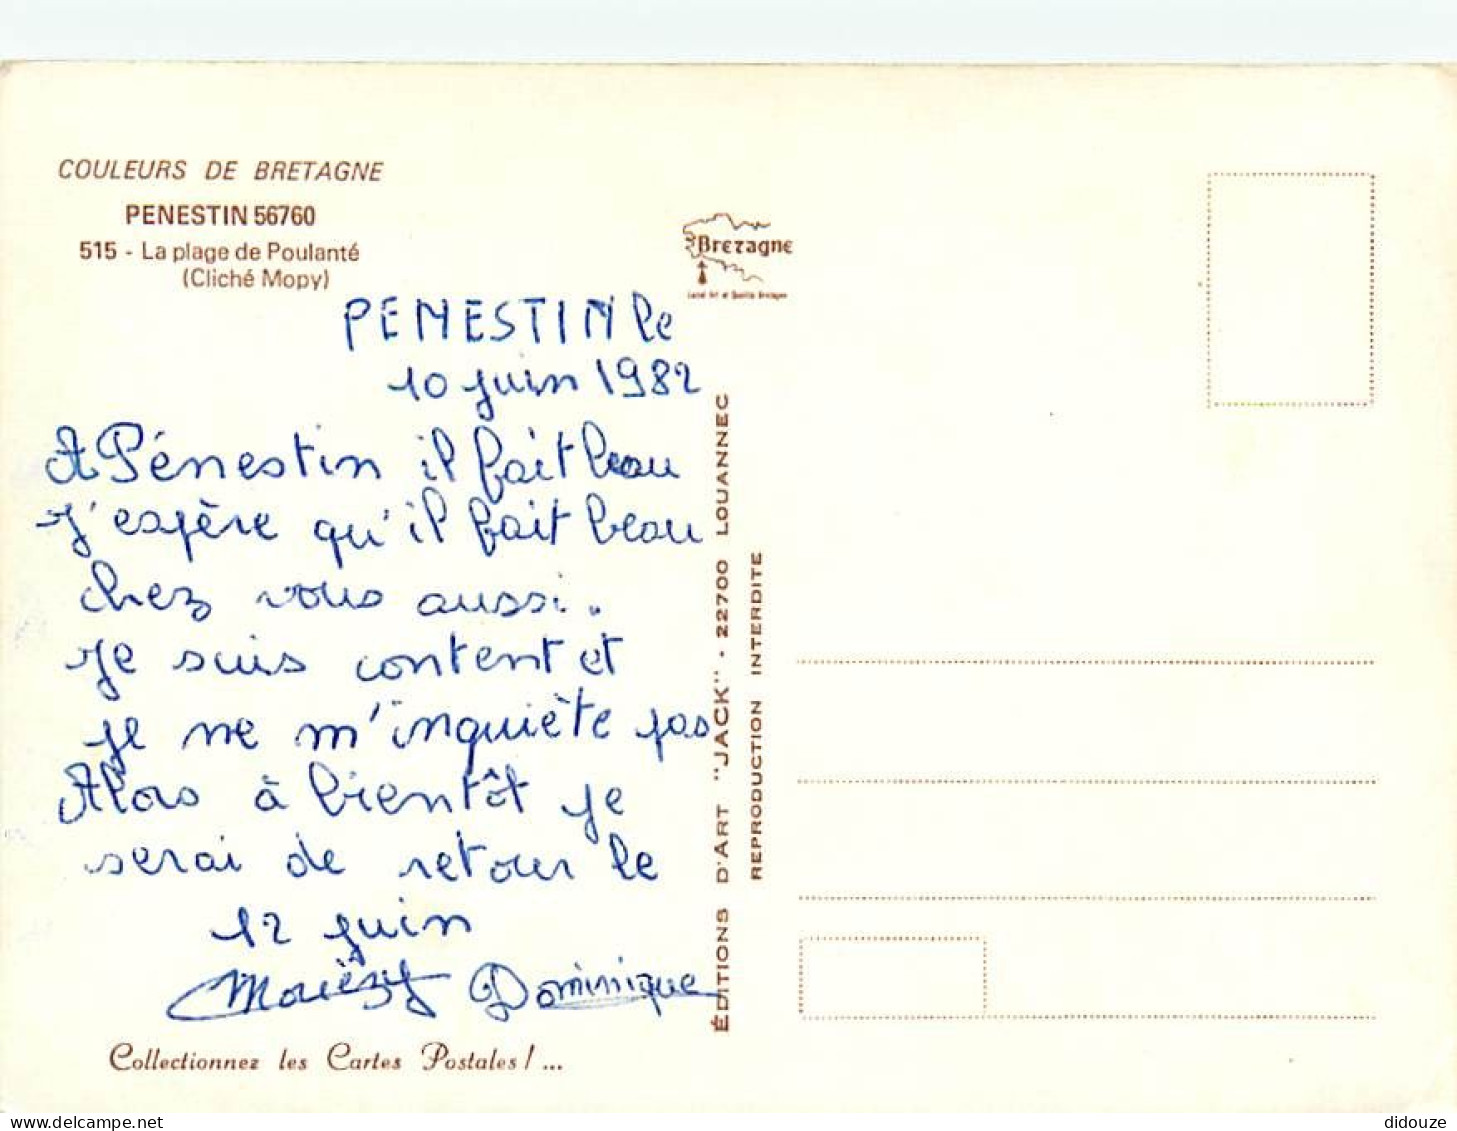 COULEURS DE BRETAGNE
PENESTIN 56760
515 - La plage de Poulanté
(Cliché Mopy)
Bretagne
Label Art et Qualité Bretagne
PENESTIN le
10 juin 1982
A Pénestin il fait beau
J'espère qu'il fait beau
chez vous aussi.
Je suis content et
je ne m'inquiète pas
Alors à bientôt je
serai de retour le
12 juin
Dominique
Collectionnez les Cartes Postales ! ...
ÉDITIONS D'ART "JACK" - 22700 LOUANNEC
REPRODUCTION INTERDITE
delcampe.net
didouze